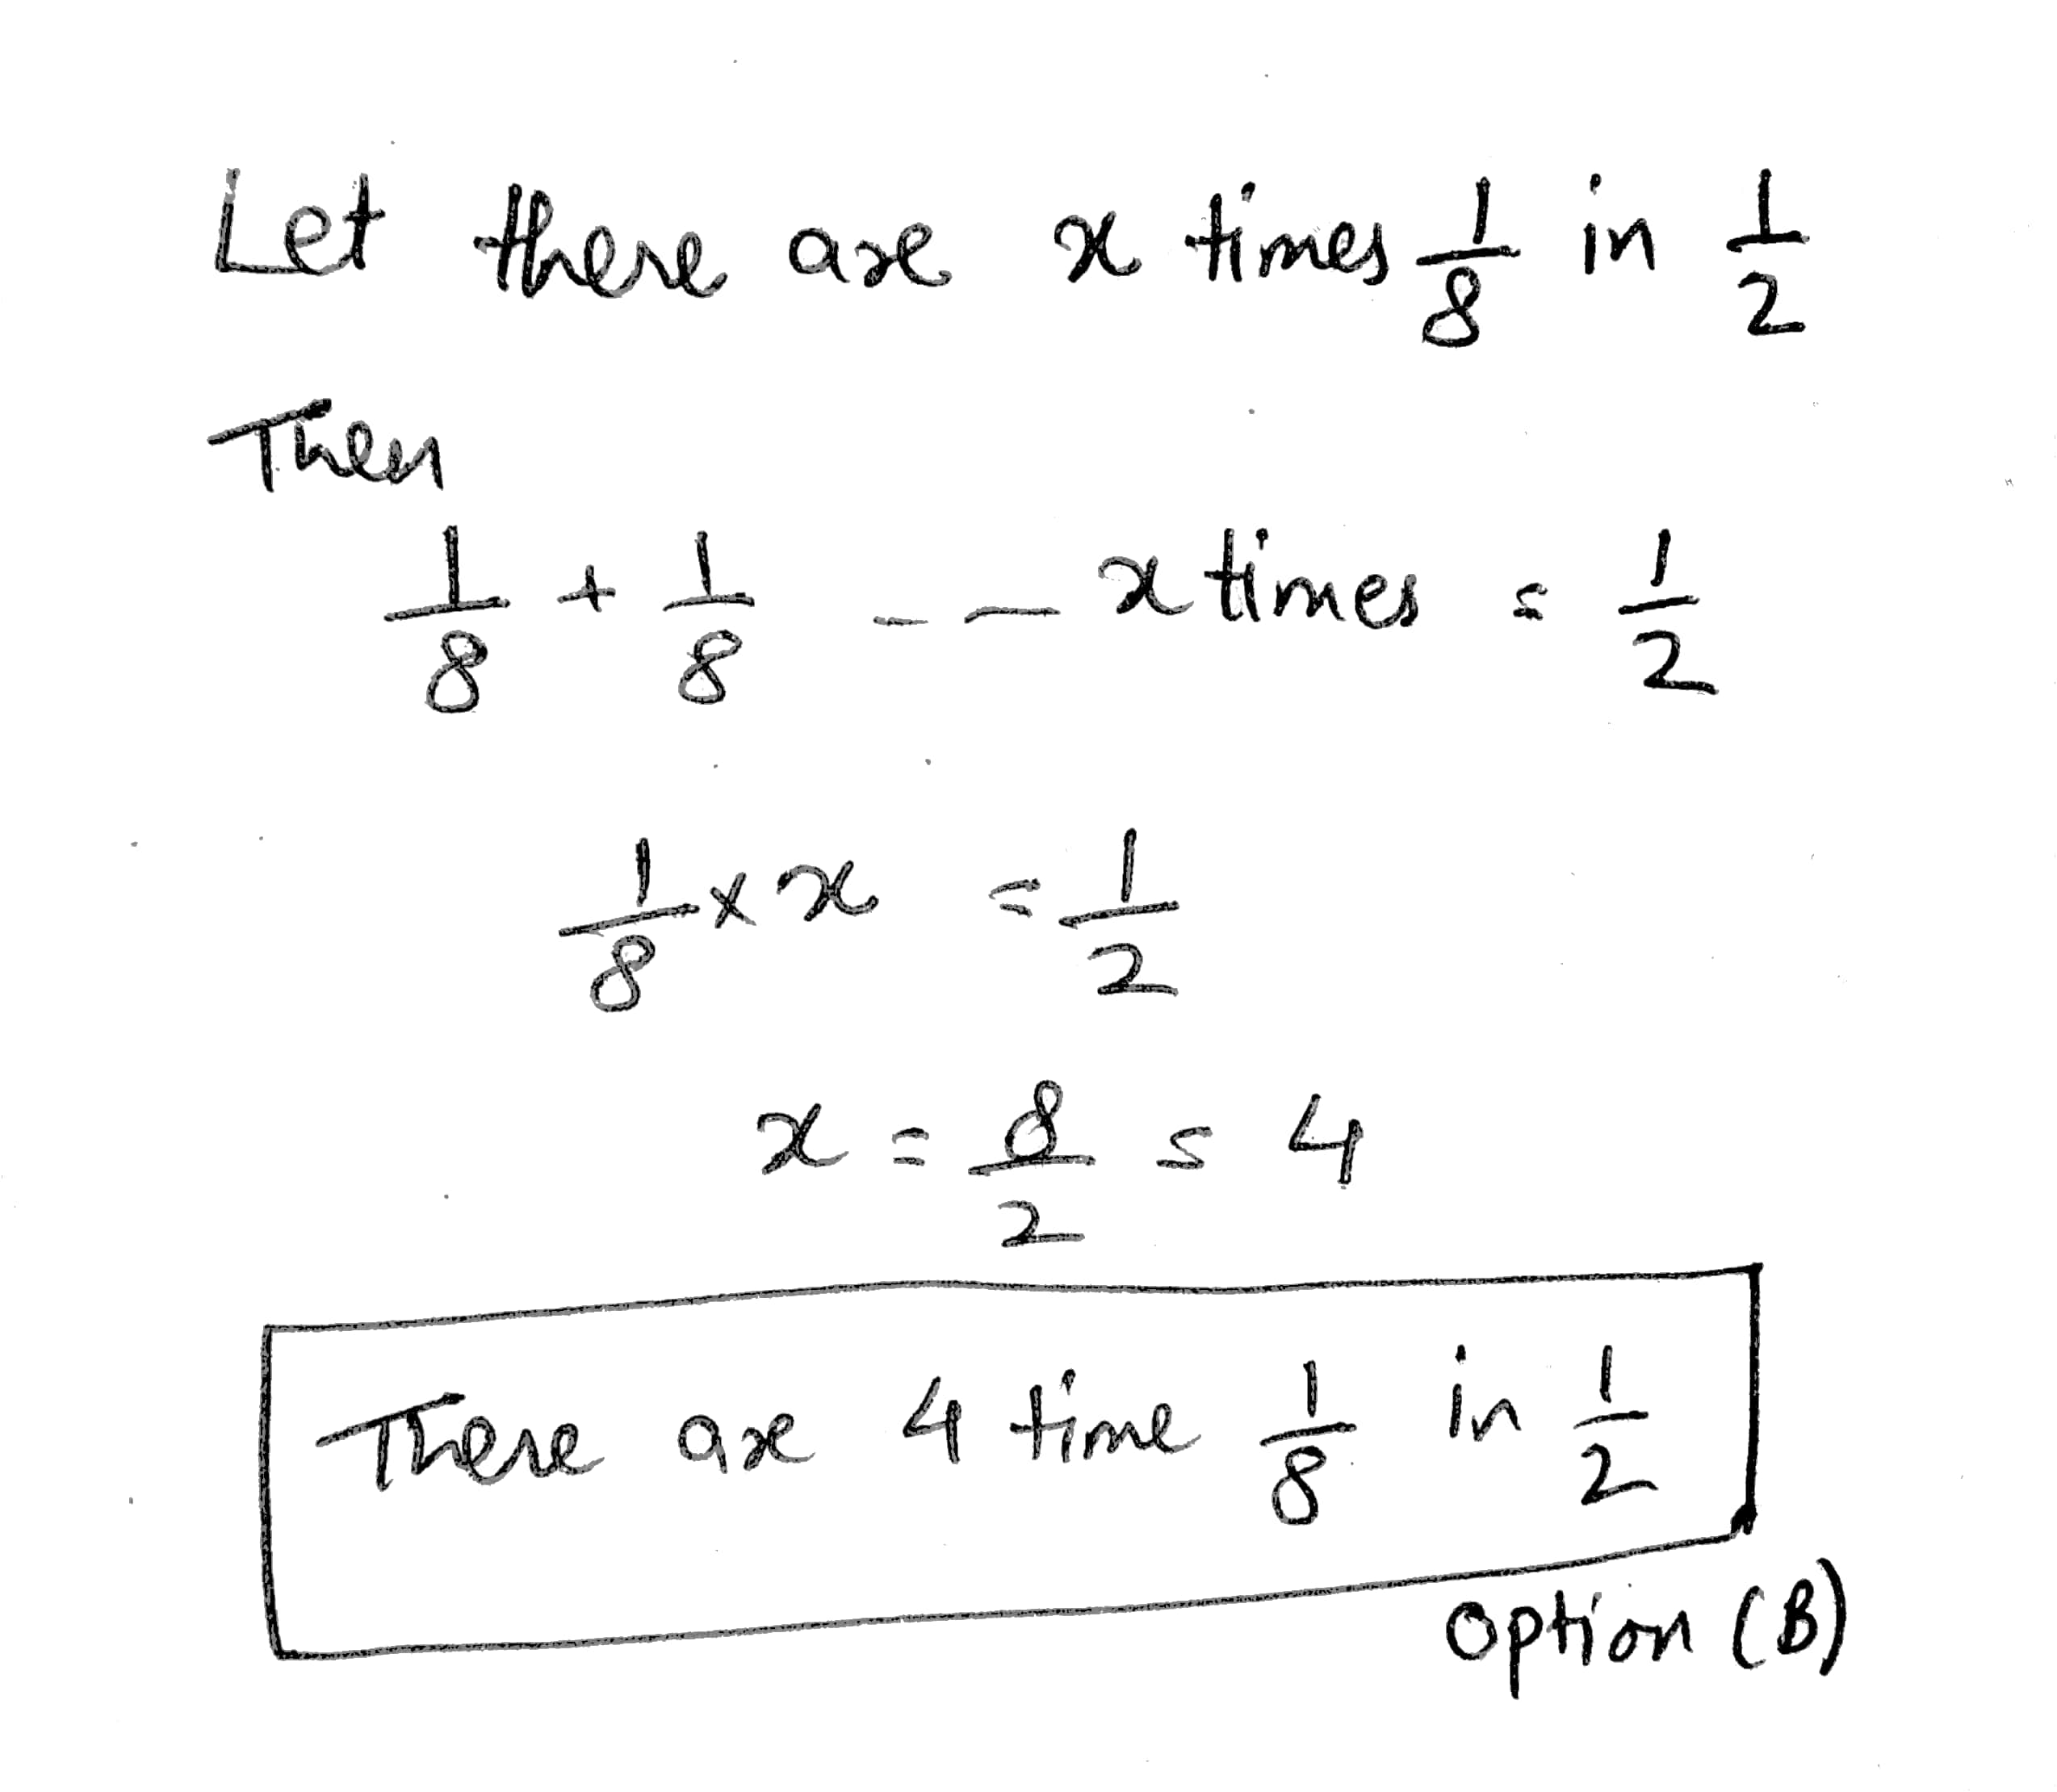 Let there are x times 1/8 in 1/2
Then
1/8 + 1/8 -- x times = 1/2
1/8 × x = 1/2
x = 8/2 = 4
There are 4 time 1/8 in 1/2
option (B)